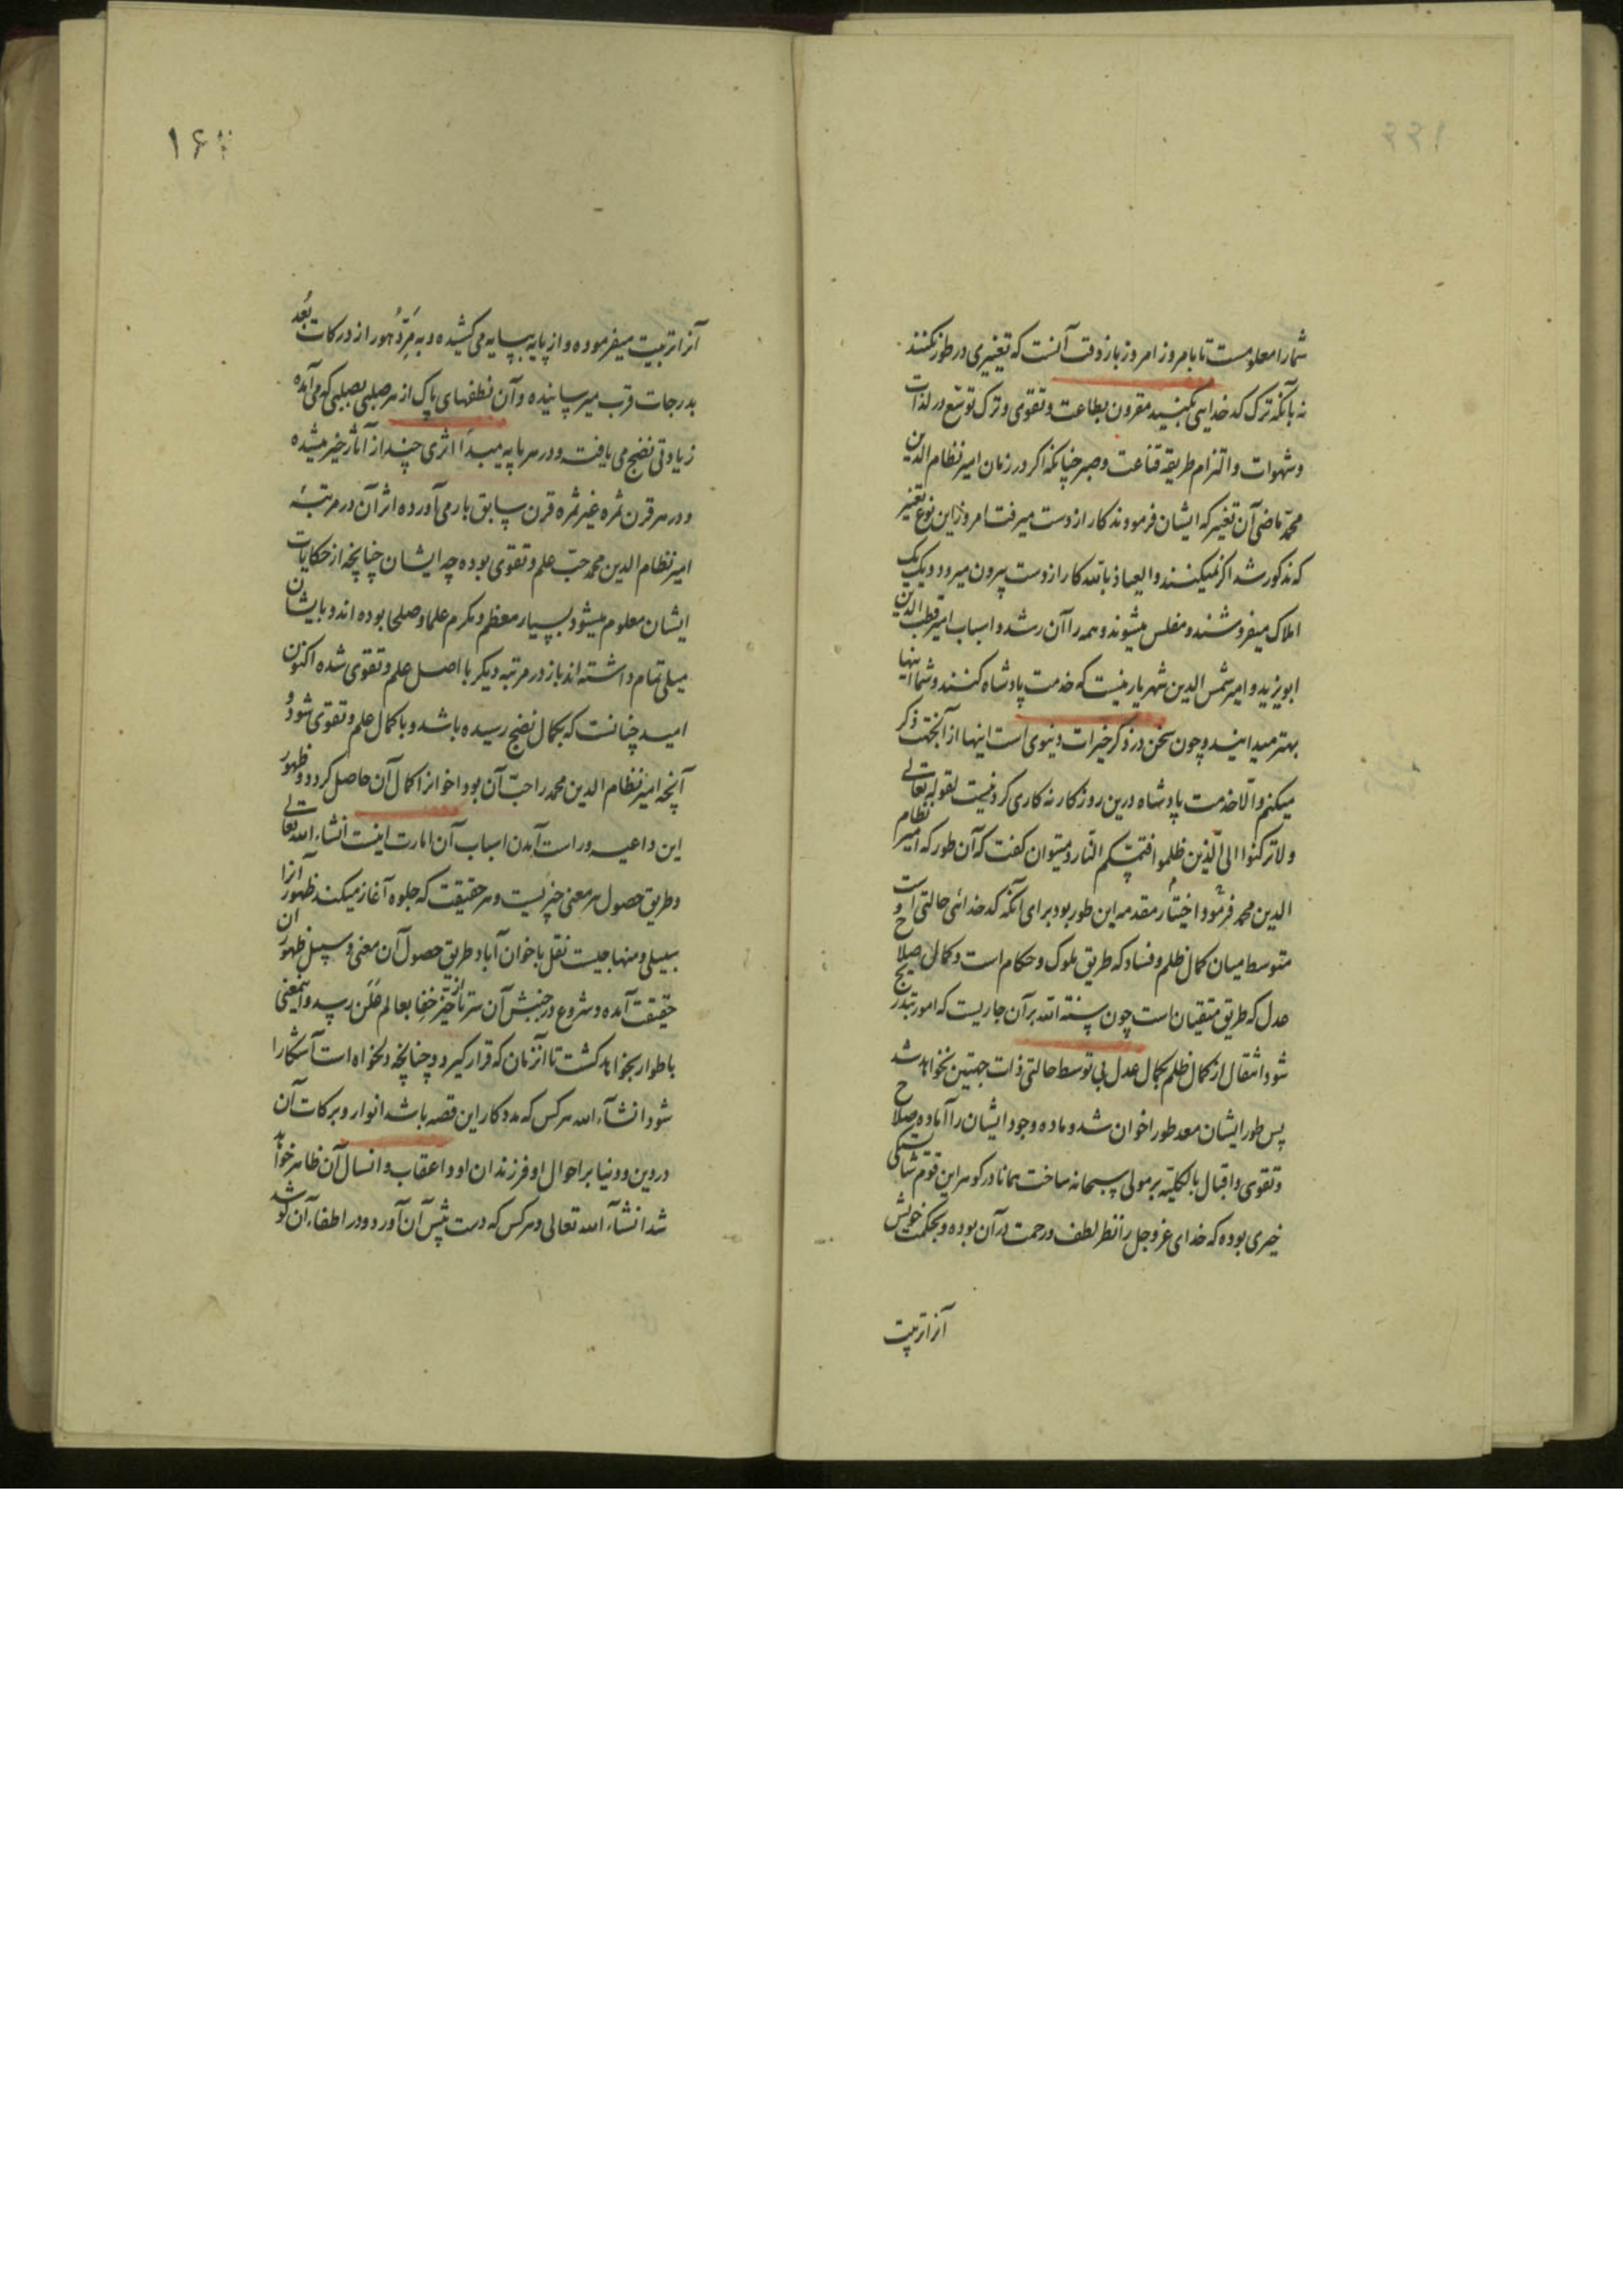 شما را معلومست تا بامروز امروز باز وقت آنست که تغییری در طور بکنند
نه بآنکه ترک کدخدایی بکنید مقرون بطاعت و تقوی و ترک توسّع در لذات
و شهوات و التزام طریقه قناعت و صبر چنانکه اگر در زمان امیر نظام الدین
محمد ماضی آن تغییر که ایشان فرمودند کار از دست میرفت امروز این نوع تغییر
که مذکور شد اگر نمیکنند و العیاذ بالله کار از دست بیرون میرود و یک یک
املاک میفروشند و مفلس میشوند و همه را آن رشد و اسباب امیر قطب الدین
ابویزید و امیر شمس الدین شهریار نیست که خدمت پادشاه کنند و شما اینها
بهتر میدانید و چون سخن در ذکر خیرات دنیوی است اینها از آنجهت ذکر
میکنم و الا خدمت پادشاه درین روزگار نه کاری کردنیست لقوله تعالی
و لا ترکنوا الی الّذین ظلموا فتمسّکم النّار و میتوان گفت که آن طور که امیر نظام
الدین محمد فرمود اختیار مقدمه این طور بود برای آنکه کدخدائی حالتی است
متوسط میان کمال ظلم و فساد که طریق ملوک و حکام است و کمال صلاح و
عدل که طریق متقیان است چون سنة الله بر آن جاریست که امور بتدریج
شود انتقال از کمال ظلم بکمال عدل بی توسط حالتی ذات جهتین نخواهد شد
پس طور ایشان معد طور اخوان شد و ماده وجود ایشان را آماده صلاح
و تقوی و اقبال بالکلیّه بر مولی سبحانه ساخت همانا در گوهر این قوم
خیری بوده که خدای عز و جل را نظر لطف و رحمت در آن بوده و بحکمت خویش
آنرا تربیت
۱۶
آنرا تربیت میفرموده و از پایه بپایه می کشیده و به مَرّ دُهور از درکات بُعد
بدرجات قرب میرسانیده و آن نطفهای پاک از هر صلبی بصلبی که می آمده
زیادتی نضج می یافت و در هر پایه مبدأ اثری چند از آثار خیر میشده
و در هر قرن ثمره غیر ثمره قرن سابق بار می آورده اثر آن در مرتبهٔ
امیر نظام الدین محمد حبّ علم و تقوی بوده چه ایشان چنانچه از حکایات
ایشان معلوم میشود بسیار معظم و مکرم علما و صلحا بوده اند و بایشان
میلی تمام داشته اند باز در مرتبه دیگر با اصل علم و تقوی شده اکنون
امید چنانست که بکمال نضج رسیده باشد و با کمال علم و تقوی شود و
آنچه امیر نظام الدین محمد را حبّ آن بود اخوان را کمال آن حاصل گردد و ظهور
این داعیه و راست آمدن اسباب آن امارت اینست انشاء الله تعالی
و طریق حصول هر معنی چیزیست و هر حقیقت که جلوه آغاز میکند ظهور آنرا
سبیلی و منهاجیست نقل باخوان آباد طریق حصول آن معنی و سبیل ظهور آن
حقیقت آمده و شروع در جنبش آن سر تا از حیّز خفا بعالم عَلَن رسد و اینمعنی
باطوار بخواهد گشت تا آنزمان که قرار گیرد و چنانچه دلخواه است آشکارا
شود انشاء الله هر کس که مددکار این قصه باشد انوار و برکات آن
در دین و دنیا بر احوال او و فرزندان او و اعقاب و انسال آن ظاهر خواهد
شد انشاء الله تعالی و هر کس که دست پیش آن آورد و در اطفاء آن کوشد